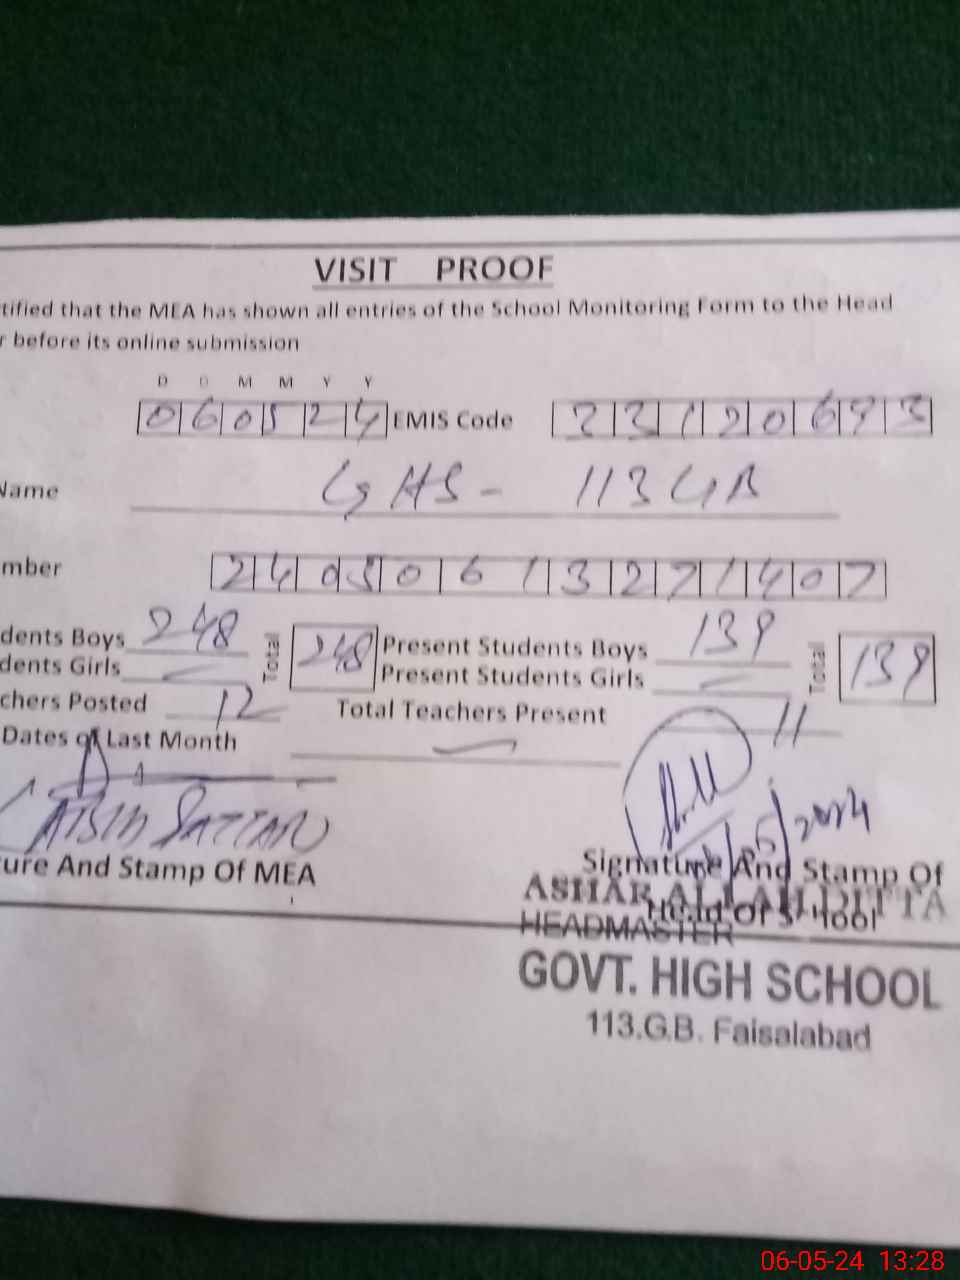 VISIT PROOF
tified that the MEA has shown all entries of the School Monitoring Form to the Head
r before its online submission
D D M M Y Y
060524 EMIS Code 33120693
Name GHS - 113 GB
mber 24050613271407
dents Boys 248 Total 248 Present Students Boys 139 Total 139
dents Girls — Present Students Girls —
chers Posted 12 Total Teachers Present 11
Dates of Last Month —
ture And Stamp Of MEA
Signature And Stamp Of
Head Of School
HEADMASTER
GOVT. HIGH SCHOOL
113.G.B. Faisalabad
06-05-24 13:28